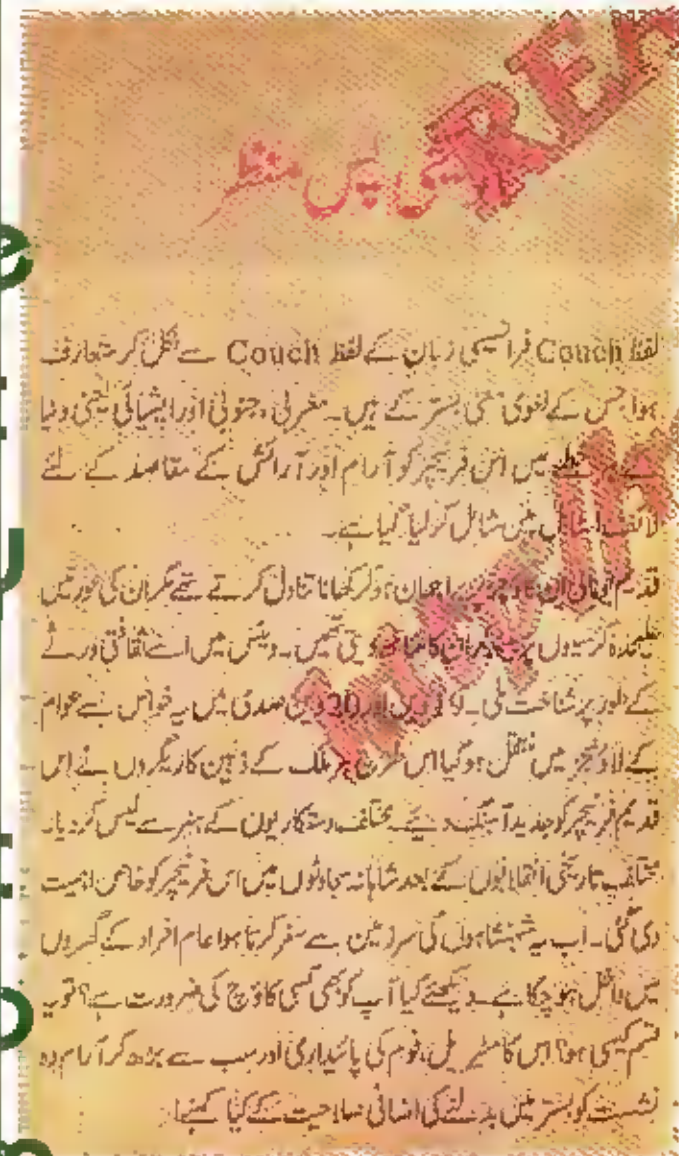 REA
پس منظر
لفظ Couch فرانسیسی زبان کے لفظ Couch سے نکل کر متعارف
ہوا جس کے لغوی معنی بستر کے ہیں۔ مغربی، جنوبی اور ایشیائی یعنی دنیا
میں اس فرنیچر کو آرام اور آرائش کے مقاصد کے لئے
لائف اسٹائل میں شامل کر لیا گیا ہے۔
قدیم یونانی ان کاؤچز پر براجمان ہو کر کھانا تناول کرتے تھے مگر ان کی عورتیں
علیحدہ کرسیوں پر بیٹھ کر ان کا ساتھ دیتی تھیں۔ وینس میں اسے ثقافتی ورثے
کے طور پر شناخت ملی۔ 19 ویں اور 20 ویں صدی میں یہ خواص سے عوام
کے لاؤنجز میں منتقل ہو گیا اس طرح ہر ملک کے ذہین کاریگروں نے اس
قدیم فرنیچر کو جدید آہنگ دیئے۔ مختلف دستکاریوں کے ہنر سے لیس کر دیا۔
مختلف تاریخی کے بعد شاہانہ سجاوٹوں میں اس فرنیچر کو خاص اہمیت
دی گئی۔ اب یہ شہنشاہوں کی سرزمین سے سفر کرتا ہوا عام افراد کے گھروں
میں داخل ہو چکا ہے۔ دیکھئے کیا آپ کو بھی کسی کاؤچ کی ضرورت ہے؟ تو یہ
قسم کیسی ہو؟ اس کا مٹیریل، فوم کی پائیداری اور سب سے بڑھ کر آرام دہ
نشست کو بستر میں بدلنے کی اضافی صلاحیت کے کیا کہنے!